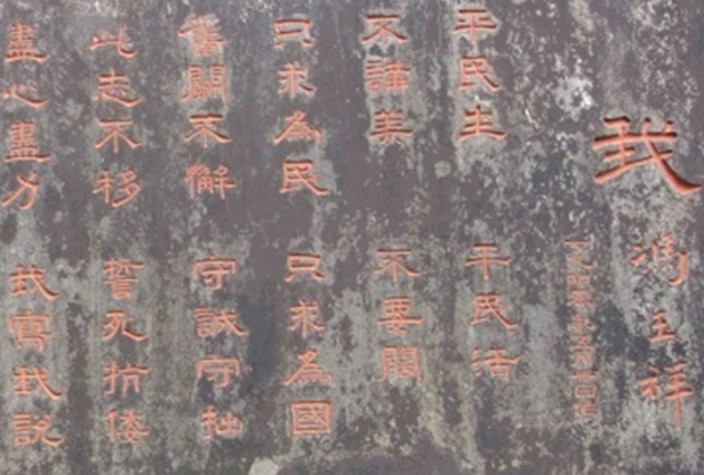 我
馮玉祥
平民生 平民活
不講美 不要闊
只求為民 只求為國
奮鬭不懈 守誠守拙
此志不移 誓死抗倭
盡心盡力 我寫我說